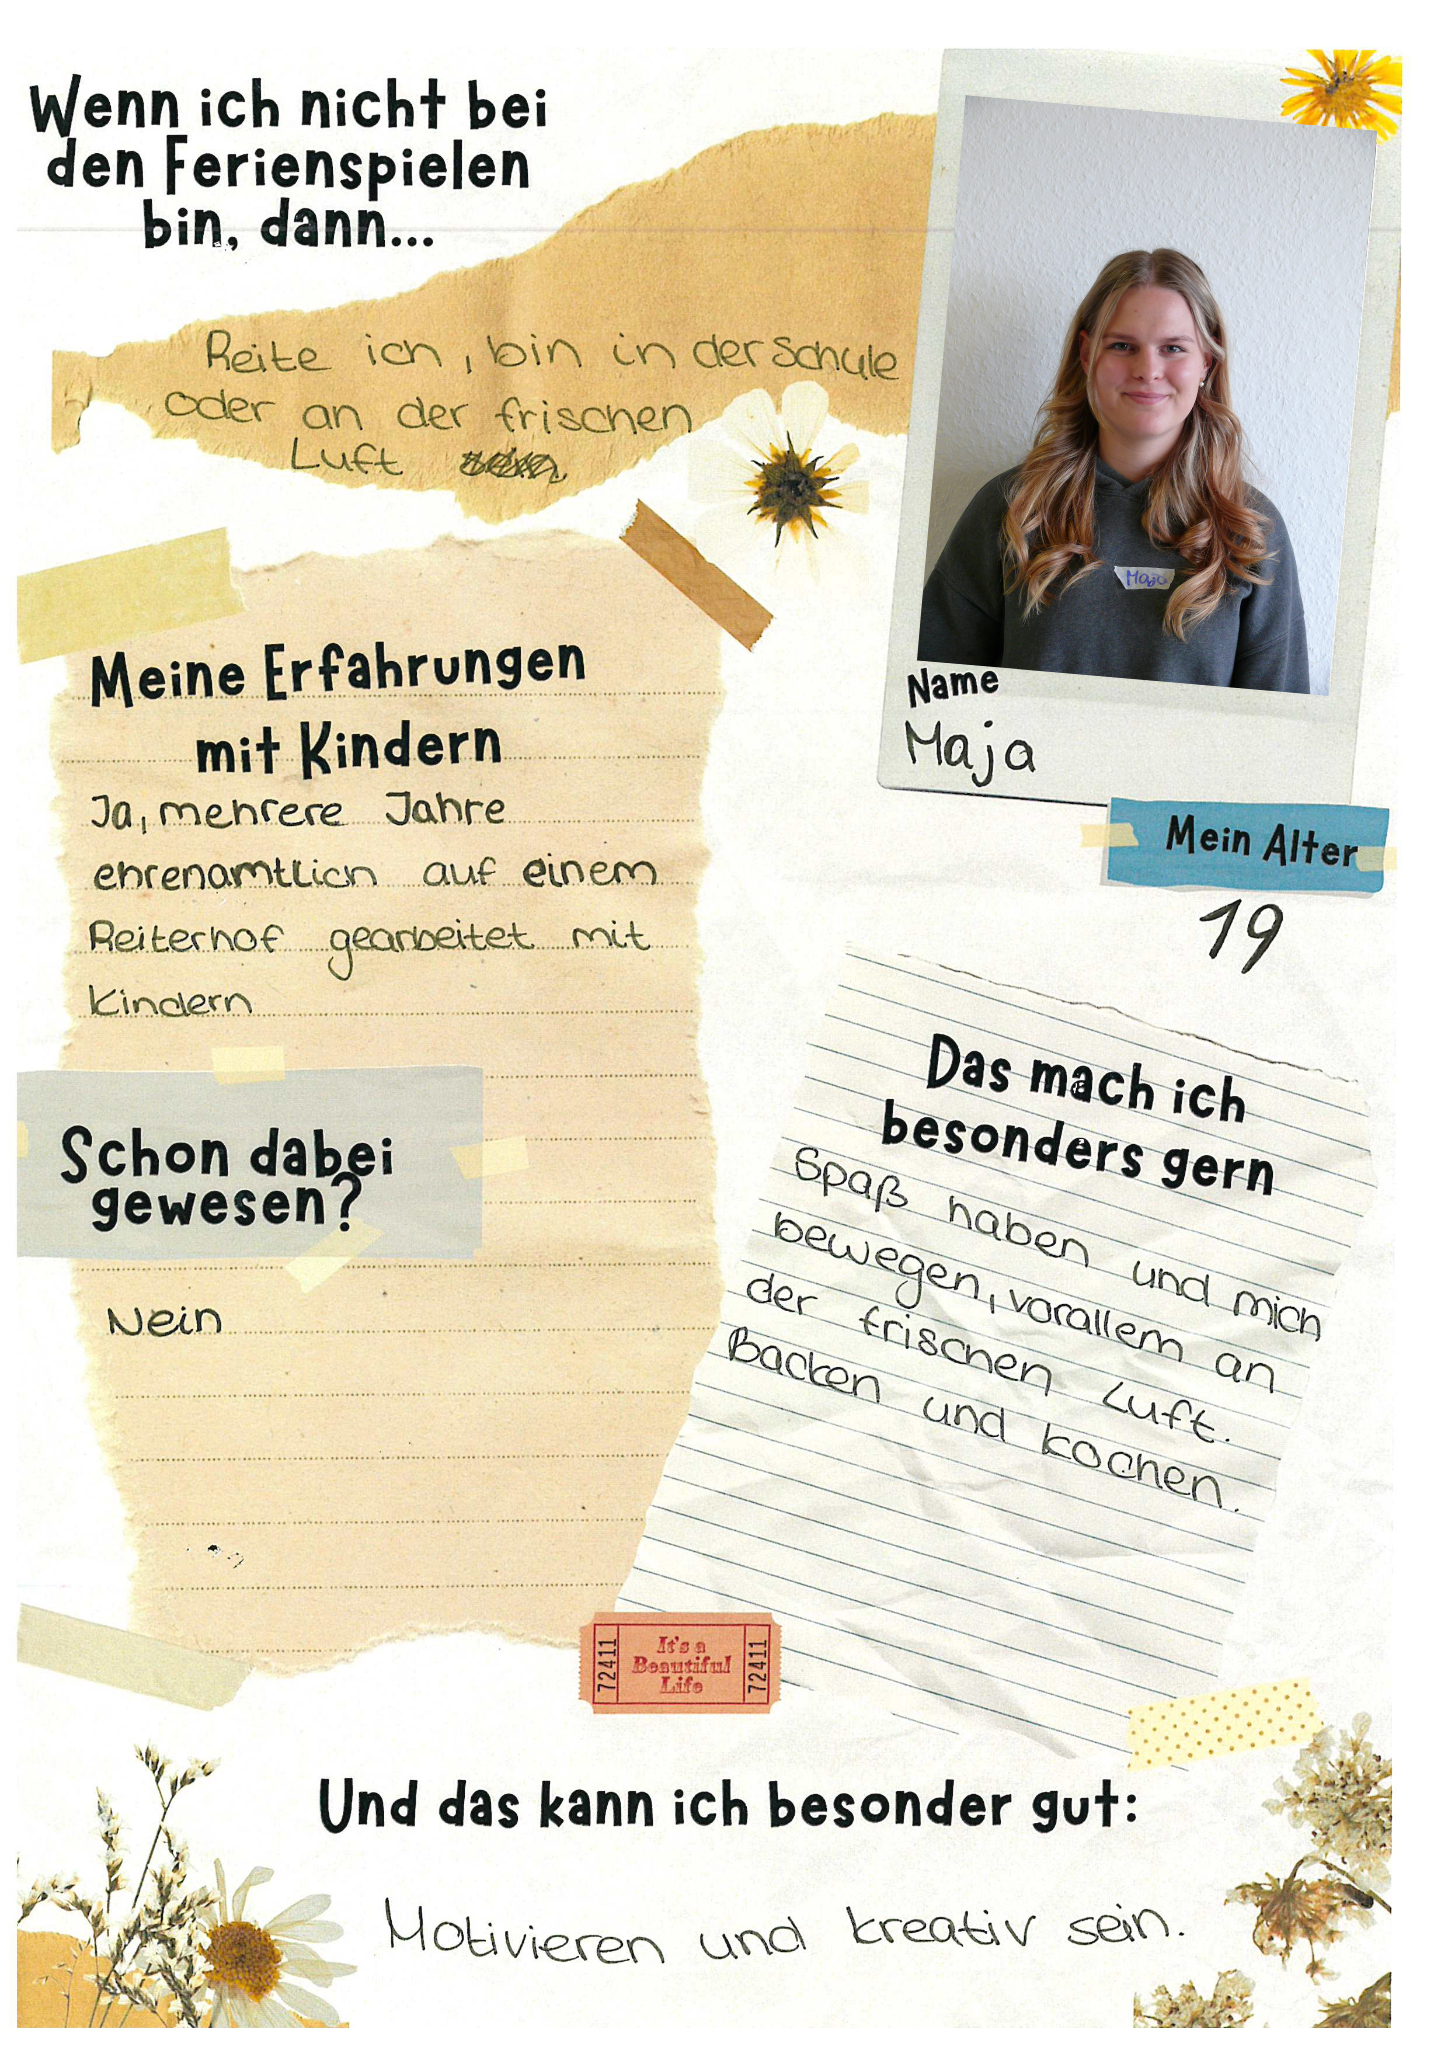 Wenn ich nicht bei
den Ferienspielen
bin, dann...
Reite ich, bin in der Schule
oder an der frischen
Luft
Maja
Name
Maja
Mein Alter
19
Meine Erfahrungen
mit Kindern
Ja, mehrere Jahre
ehrenamtlich auf einem
Reiterhof gearbeitet mit
Kindern
Schon dabei
gewesen?
Nein
Das mach ich
besonders gern
Spaß haben und mich
bewegen, vorallem an
der frischen Luft.
Backen und kochen.
72411
It's a
Beautiful
Life
72411
Und das kann ich besonder gut:
Motivieren und kreativ sein.